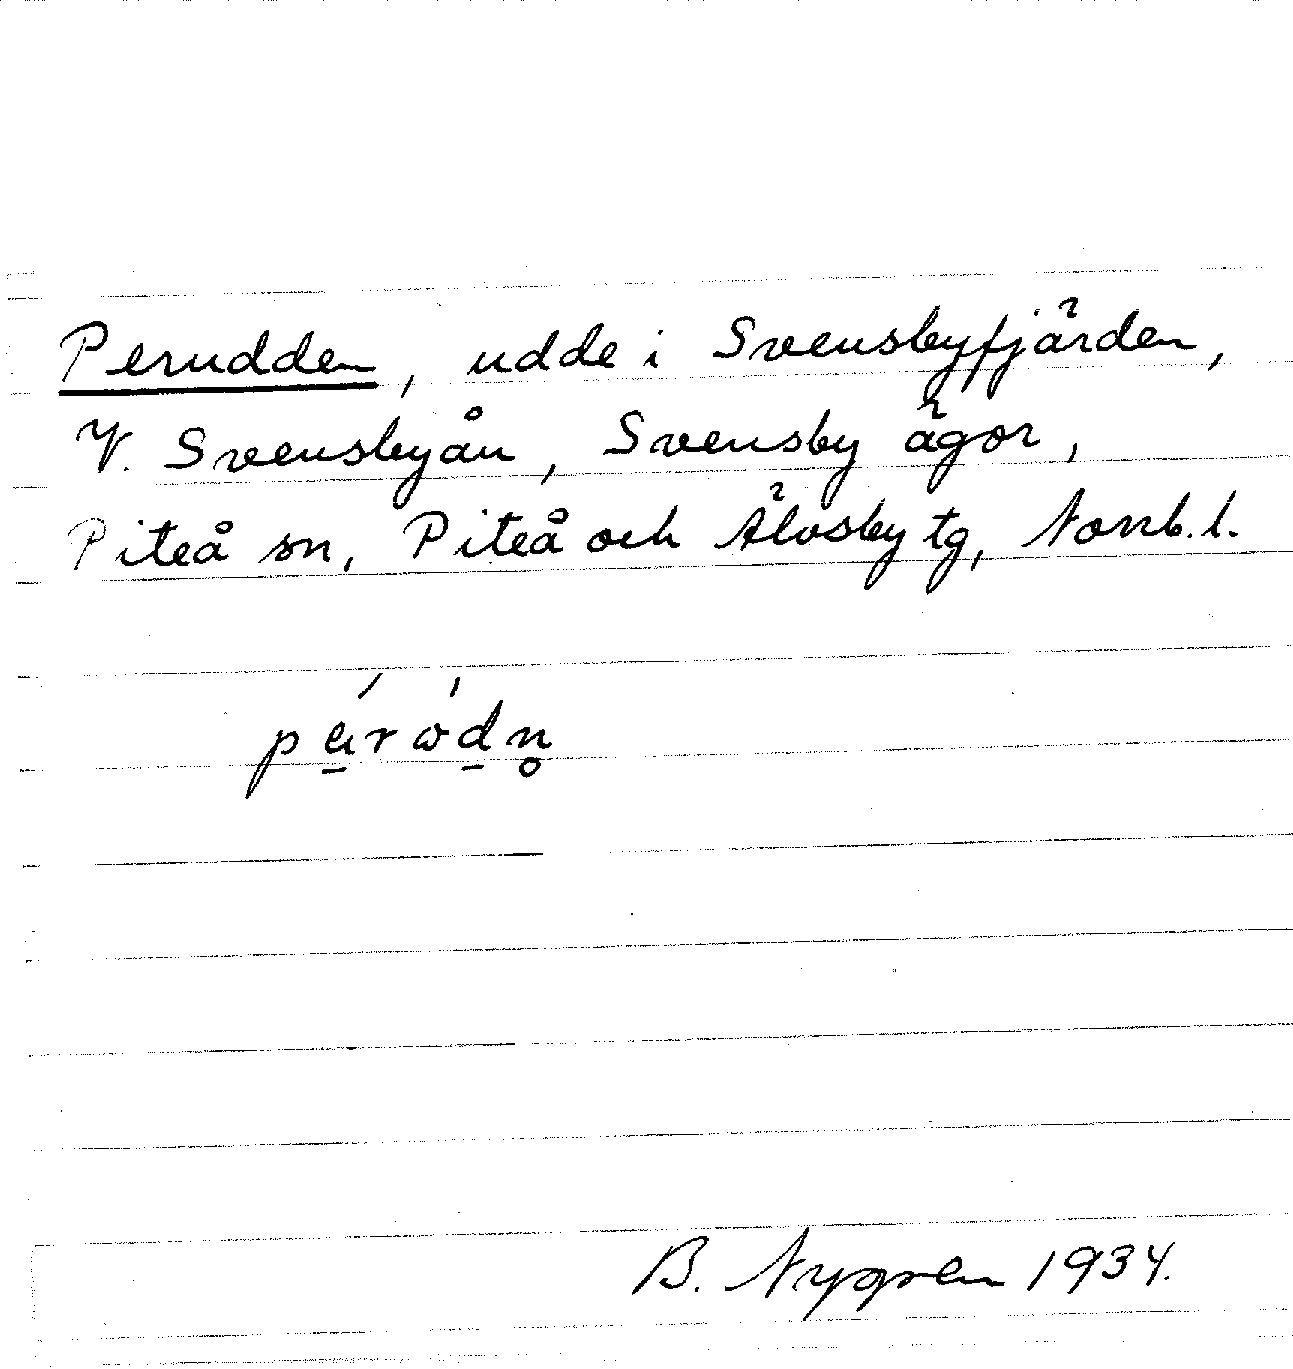 Perudden, udde i Svensbyfjärden,
V. Svensbyån, Svensby ägor,
Piteå sn, Piteå och Älvsby tg, Norrb. l.
B. Nygren 1934.